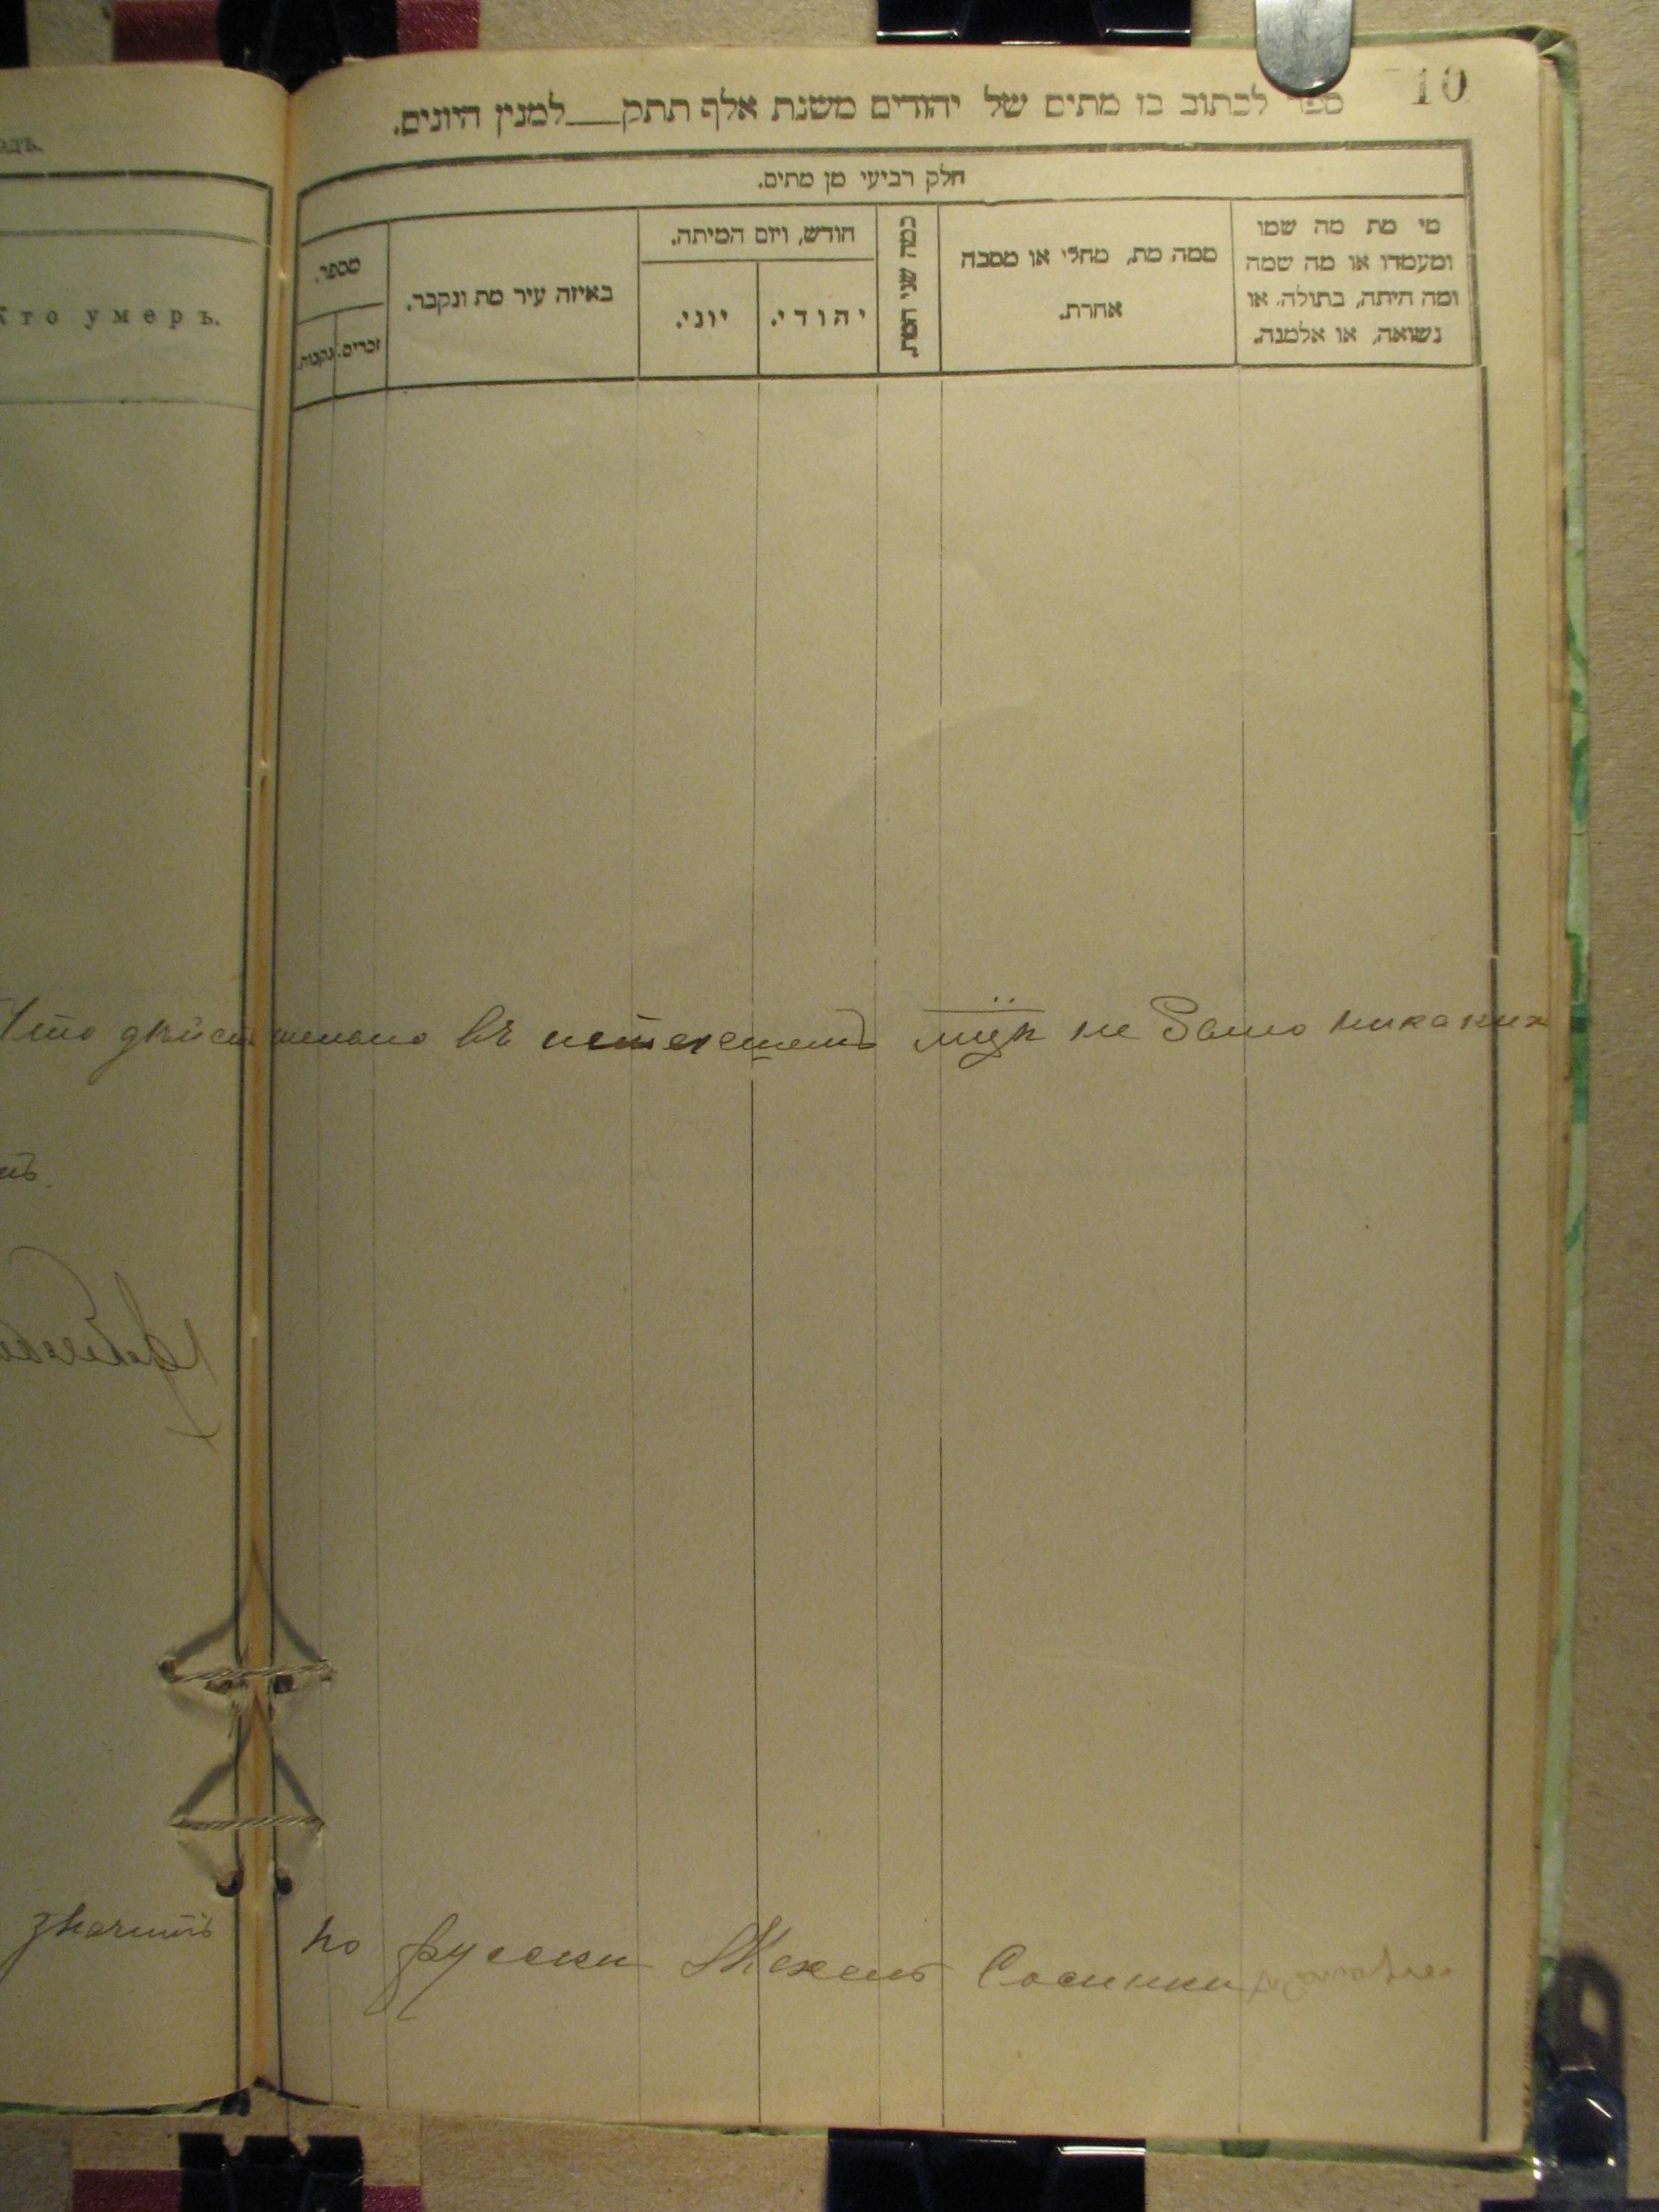 10
ספר לכתוב בו מתים של יהודים משנת אלף תתק___למנין היונים.
חלק רביעי מן מתים.
מי מת מה שמו
ומעמדו או מה שמה
ומה היתה, בתולה, או
נשואה, או אלמנה.
ממה מת, מחלי או מסבה
אחרת.
כמה שני המת.
חודש, ויום המיתה.
יהודי.
יוני.
באיזה עיר מת ונקבר.
מספר.
זכרים.
נקבות.
Кто умеръ.
Что дѣйствительно въ
не было никакихъ
значитъ по русски